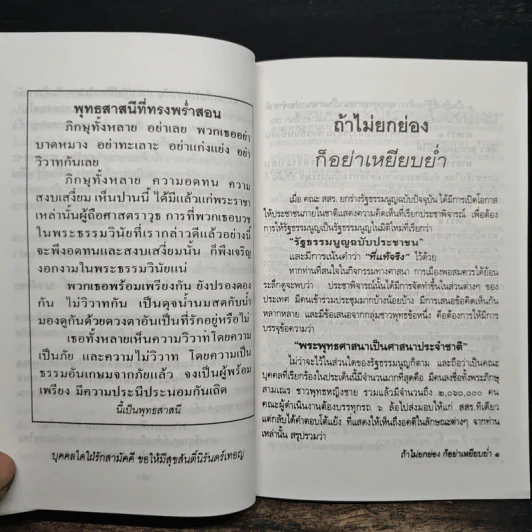 พุทธสาสนีที่ทรงพร่ำสอน
ภิกษุทั้งหลาย อย่าเลย พวกเธออย่า
บาดหมาง อย่าทะเลาะ อย่าแก่งแย่ง อย่า
วิวาทกันเลย
ภิกษุทั้งหลาย ความอดทน ความ
สงบเสงี่ยม เห็นปานนี้ ได้มีแล้วแก่พระราชา
เหล่านั้นผู้ถือศาสตราวุธ การที่พวกเธอบวช
ในพระธรรมวินัยที่เรากล่าวดีแล้วอย่างนี้
จะพึงอดทนและสงบเสงี่ยมนั้น ก็พึงเจริญ
งอกงามในพระธรรมวินัยแน่
พวกเธอพร้อมเพรียงกัน ยังปรองดอง
กัน ไม่วิวาทกัน เป็นดุจน้ำนมสดกับน้ำ
มองดูกันด้วยดวงตาอันเป็นที่รักอยู่หรือไม่
เธอทั้งหลายเห็นความวิวาทโดยความ
เป็นภัย และความไม่วิวาท โดยความเป็น
ธรรมอันเกษมจากภัยแล้ว จงเป็นผู้พร้อม
เพรียง มีความประนีประนอมกันเถิด
นี้เป็นพุทธสาสนี
บุคคลใดใฝ่รักสามัคคี ขอให้มีสุขสันติ์นิรันดร์เทอญ
ถ้าไม่ยกย่อง
ก็อย่าเหยียบย่ำ
เมื่อ คณะ สสร. ยกร่างรัฐธรรมนูญฉบับปัจจุบัน ได้มีการเปิดโอกาส
ให้ประชาชนภายในชาติแสดงความคิดเห็นที่เรียกประชาพิจารณ์ เพื่อต้อง
การให้รัฐธรรมนูญเป็นรัฐธรรมนูญในมิติใหม่ที่เรียกว่า
"รัฐธรรมนูญฉบับประชาชน"
และมีการเน้นคำว่า "ที่แท้จริง" ไว้ด้วย
หากท่านที่สนใจในกิจกรรมทางศาสนา การเมืองพอสมควรได้ย้อน
ระลึกดูจะพบว่า ประชาพิจารณ์นั้นได้มีการจัดทำขึ้นในส่วนต่างๆ ของ
ประเทศ มีคนเข้าร่วมประชุมมากบ้างน้อยบ้าง มีการเสนอข้อคิดเห็นกัน
หลากหลาย และมีข้อเสนอจากกลุ่มชาวพุทธข้อหนึ่ง คือต้องการให้มีการ
บรรจุข้อความว่า
"พระพุทธศาสนาเป็นศาสนาประจำชาติ"
ไม่ว่าจะไว้ในส่วนใดของรัฐธรรมนูญก็ตาม และถือว่าเป็นคณะ
บุคคลที่เรียกร้องในประเด็นนี้มีจำนวนมากที่สุดคือ มีคนลงชื่อทั้งพระภิกษุ
สามเณร ชาวพุทธหญิงชาย รวมแล้วมีจำนวนถึง ๒,๐๖๐,๐๐๐ คน
คณะผู้ดำเนินงานต้องบรรทุกรถ ๖ ล้อไปส่งมอบให้แก่ สสร.ทีเดียว
แต่กลับได้คำตอบโต้แย้ง ที่แสดงให้เห็นถึงอคติในลักษณะต่างๆ จากท่าน
เหล่านั้น สรุปรวมว่า
ถ้าไม่ยกย่อง ก็อย่าเหยียบย่ำ ๑